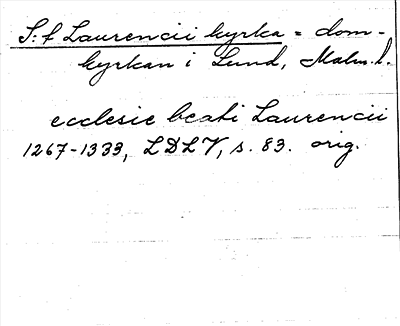 S:t Laurencii kyrka = dom-
kyrkan i Lund, Malm. l.
ecclesie beati Laurencii
1267-1333, LDLV, s. 83. orig.